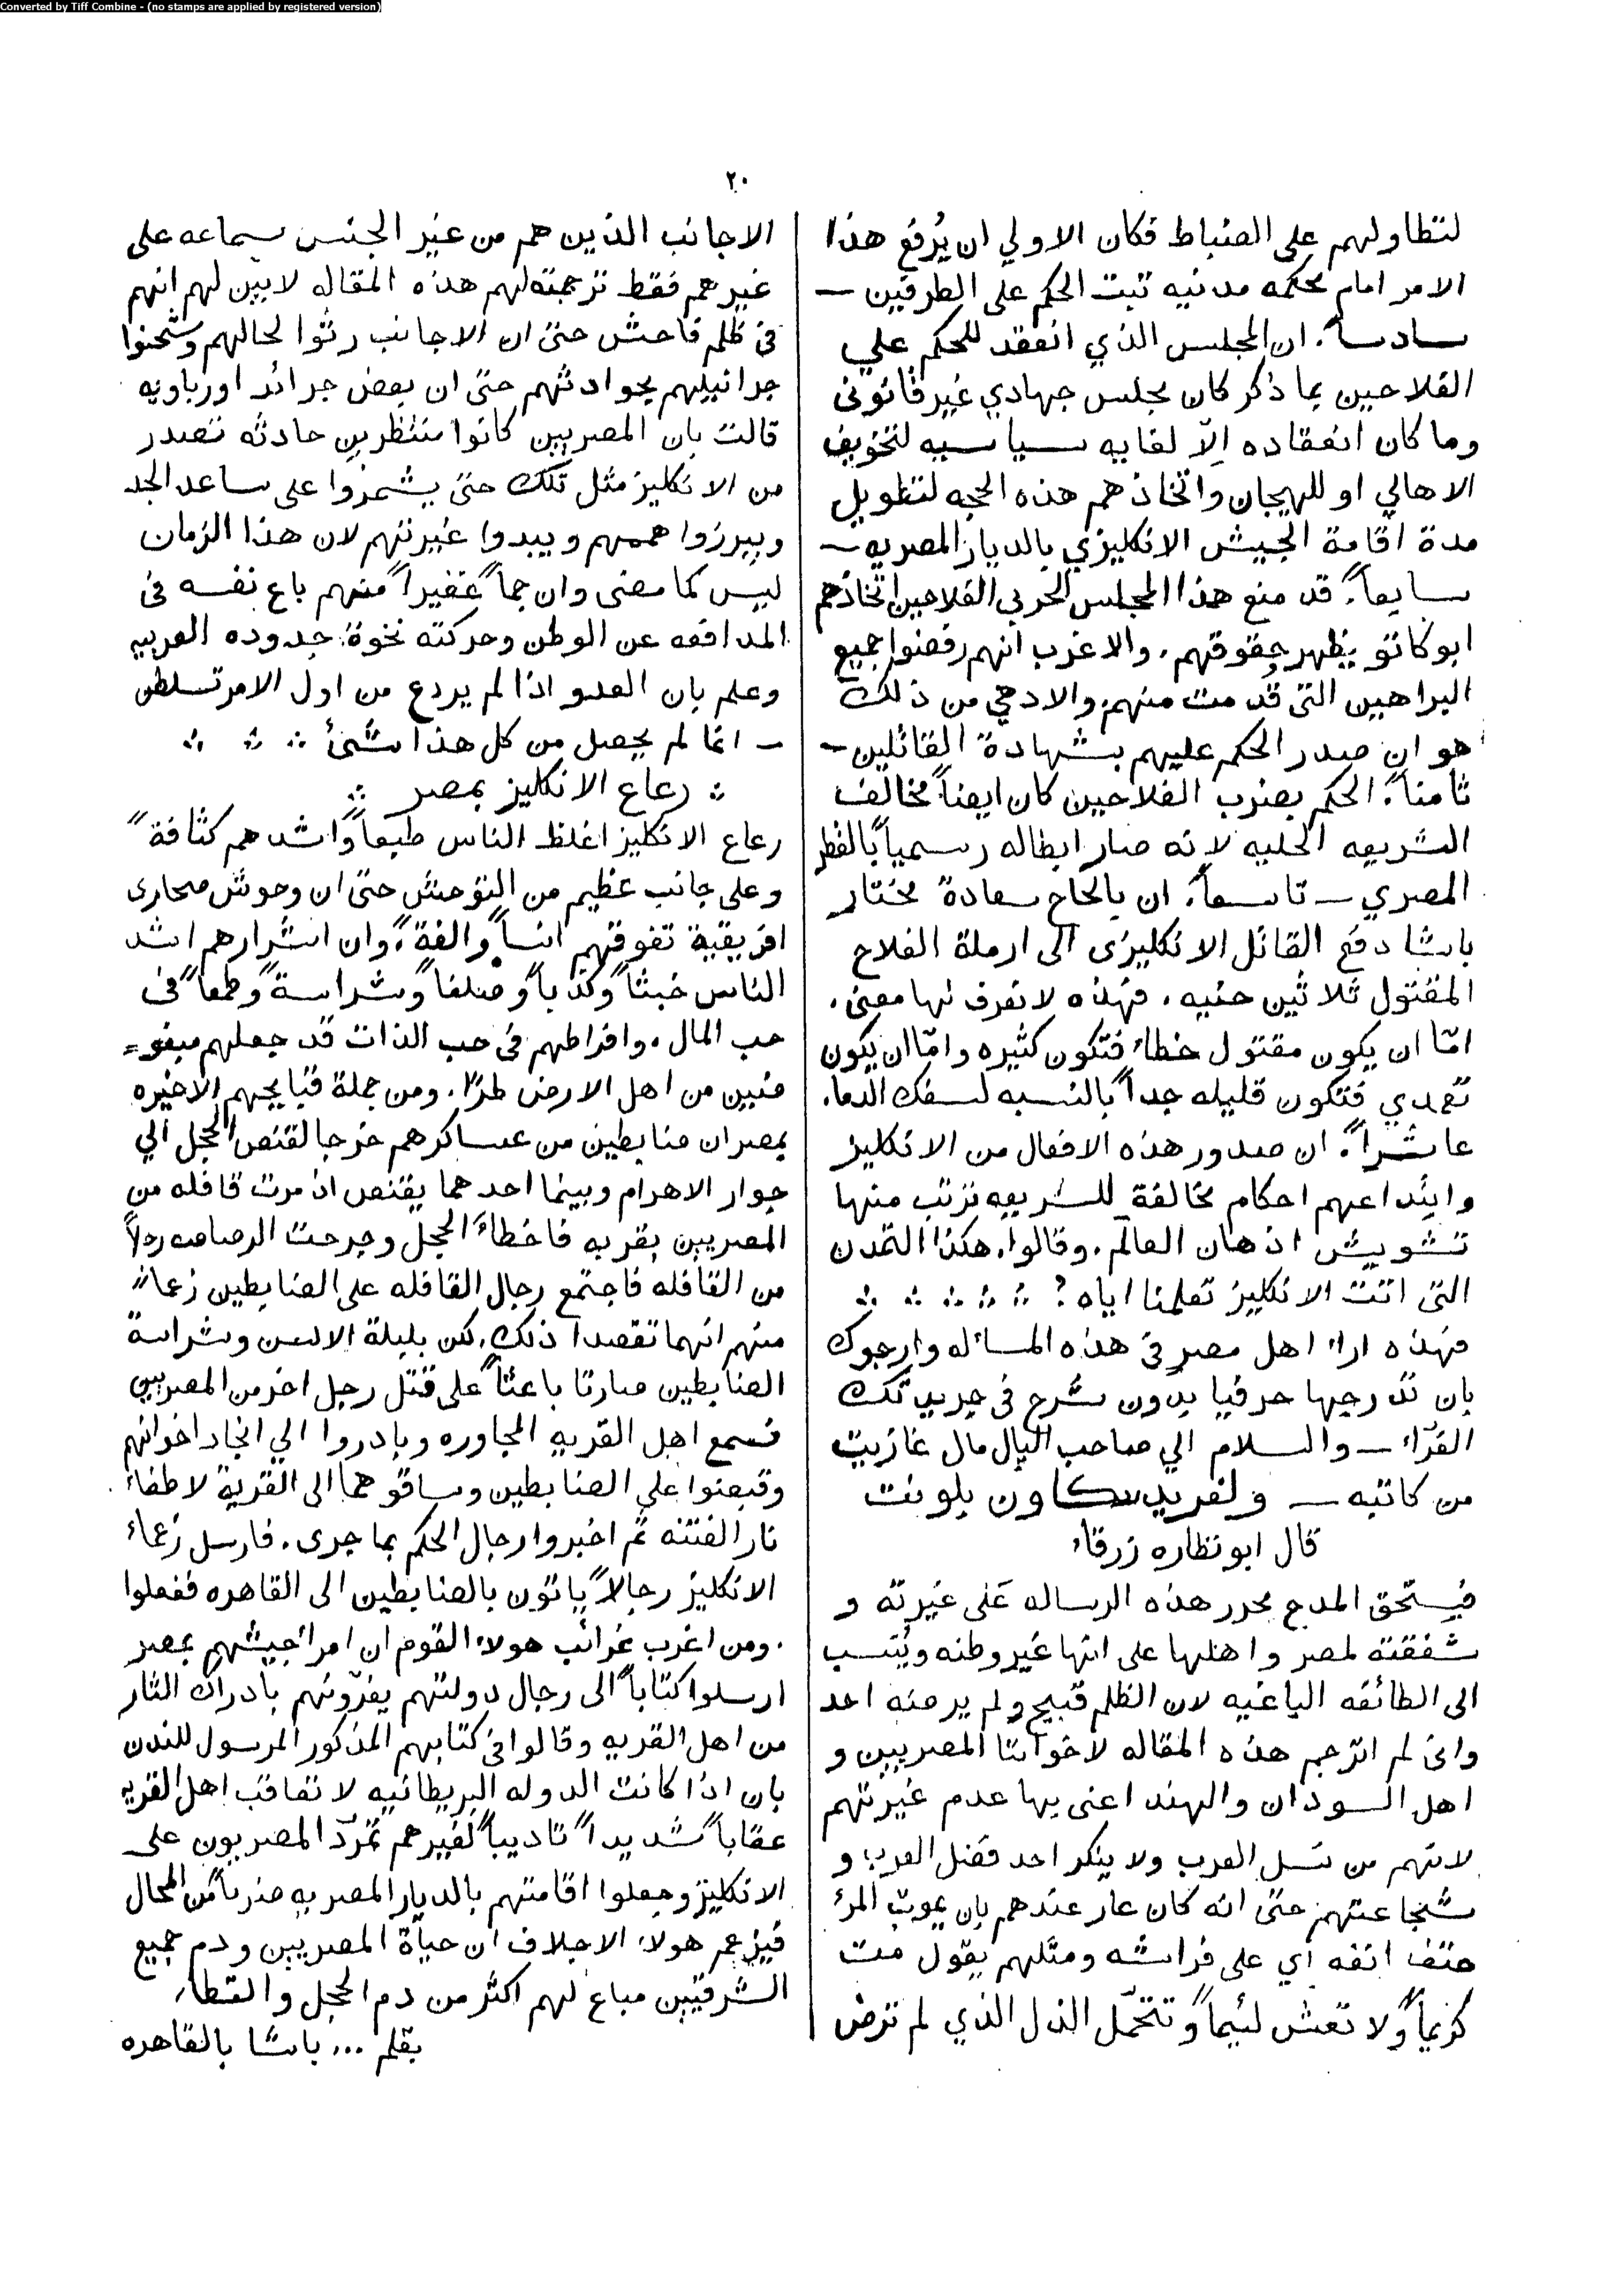 Converted by Tiff Combine - (no stamps are applied by registered version)
٢٠
لتطاولهم على الضباط فكان الاولي ان يُرفع هذا
الامر امام محكمه مدنيه تبت الحكم على الطرفين —
سادساً. ان المجلس الذي انعقد للحكم علي
الفلاحين بما ذكر كان مجلس جهادي غير قانونى
وما كان انعقاده الّا لغايه سياسيه لتخويف
الاهالي او للهيجان واتخاذهم هذه الحجه لتطويل
مدة اقامة الجيش الانكليزي بالديار المصريه —
سابعاً. قد منع هذا المجلس الحربي الفلاحين اتخاذهم
ابوكاتو يظهر حقوقهم. والاغرب انهم رفضوا جميع
البراهين التى قدمت منهم والادهي من ذلك
هو ان صدر الحكم عليهم بشهادة القاتلين —
ثامناً. الحكم بضرب الفلاحين كان ايضاً مخالف
الشريعه المحليه لانه صار ابطاله رسمياً بالقطر
المصري — تاسعاً. ان بالحاح سعادة مختار
باشا دفع القاتل الانكليزى الى ارملة الفلاح
المقتول ثلاثين جنيه. فهذه لا نعرف لها معنى.
امّا ان يكون مقتول خطاء فتكون كثيره وامّا ان يكون
تعمدي فتكون قليله جداً بالنسبه لسفك الدماء
عاشراً. ان صدور هذه الافعال من الانكليز
وابتداعهم احكام مخالفة للشريعه ترتب منها
تشويش اذهان العالم. وقالوا. هكذا التمدن
التى اتت الانكليز تعلمنا اياه؟
فهذه اراء اهل مصر فى هذه المساله وارجوك
بان تدرجها حرفيا بدون شرح فى جريدتك
الغرّاء — والسلام الي صاحب البال مال غازيت
من كاتبه — ولفريد سكاون بلونت
قال ابو نظاره زرقاء
فيستحق المدح محرر هذه الرساله على غيرته و
شفقته لمصر واهلها على انها غير وطنه ويُنتسب
الى الطائفه الباغيه لان الظلم قبيح ولم يرضه احد
وانى لم اترجم هذه المقاله لاخواننا المصريين و
اهل السودان والهند اعنى بها عدم غيرتهم
لانهم من نسل العرب ولا ينكر احد فضل العرب و
شجاعتهم حتىّ انه كان عار عندهم بان يموت المرء
حتف انفه اي على فراشه ومثلهم يقول مت
كريماً ولا تعش لئيماً وتتحمّل الذل الذي لم ترض
الاجانب الذين هم من غير الجنس سماعه على
غيرهم فقط ترجمته لهم هذه المقاله لابين لهم انهم
فى ظلم فاحش حتىّ ان الاجانب رثوا لحالهم وشحنوا
جرانيلهم بحوادثهم حتىّ ان بعض جرائد اورباويه
قالت بان المصريين كانوا منتظرين حادثه تصدر
من الانكليز مثل تلك حتىّ يشمروا على ساعد الجد
ويبرزوا هممهم ويبدوا غيرتهم لان هذا الزمان
ليس كما مضى وان جماً غفيراً منهم باع نفسه فى
المدافعه عن الوطن وحركته نخوة جدوده العربيه
وعلم بان العدو اذا لم يردع من اول الامر تسلطن
— انما لم يحصل من كل هذا شئ
رعاع الانكليز بمصر
رعاع الانكليز اغلظ الناس طبعاً واشدهم كثافةً
وعلى جانب عظيم من التوحش حتىّ ان وحوش صحارى
افريقية تفوقهم انساً والفةً. وان اشرارهم اشد
الناس خبثاً وكذباً وصلفاً وشراسةً وطمعاً فى
حب المال. وافراطهم فى حب الذات قد جعلهم مبغو=
ضين من اهل الارض طرّا. ومن جملة قبايحهم الاخيره
بمصر ان ضابطين من عساكرهم خرجا لقنص الحجل الي
جوار الاهرام وبينما احدهما يقتنص اذ مرت قافله من
المصريين بقربه فاخطاءَ الحجل وجرحت الرصاصه رجلاً
من القافله فاجتمع رجال القافله على الضابطين زعماً
منهم انهما تقصدا ذلك. لكن بلبلة الالسن وشراسة
الضابطين صارتا باعثاً على قتل رجل اخر من المصريين
فسمع اهل القريه المجاوره وبادروا الي انجاد اخوانهم
وقبضوا علي الضابطين وساقوهما الى القرية لاطفاء
نار الفتنه ثم اخبروا رجال الحكم بما جرى. فارسل زعماء
الانكليز رجالاً ياتون بالضابطين الى القاهره ففعلوا
. ومن اغرب غرائب هولاء القوم ان امراء جيشهم بمصر
ارسلوا كتاباً الى رجال دولتهم يغرّونهم بادراك الثار
من اهل القريه وقالوا فى كتابهم المذكور المرسول للندن
بان اذا كانت الدوله البريطانيه لا تعاقب اهل القريه
عقاباً شديداً تاديباً لغيرهم تمرّد المصريون على
الانكليز وجعلوا اقامتهم بالديار المصريه ضرباً من المحال
فيزعم هولاء الاجلاف ان حياة المصريين ودم جميع
الشرقيين مباع لهم اكثر من دم الحجل والقطاء.
بقلم ... باشا بالقاهره